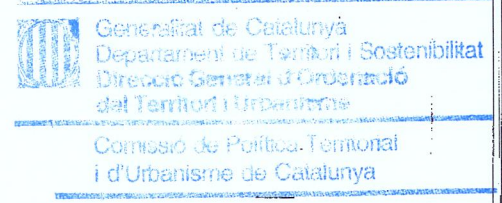 Generalitat de Catalunya
Departament de Territori i Sostenibilitat
Direcció General d'Ordenació
del Territori i Urbanisme
Comissió de Política Territorial
i d'Urbanisme de Catalunya